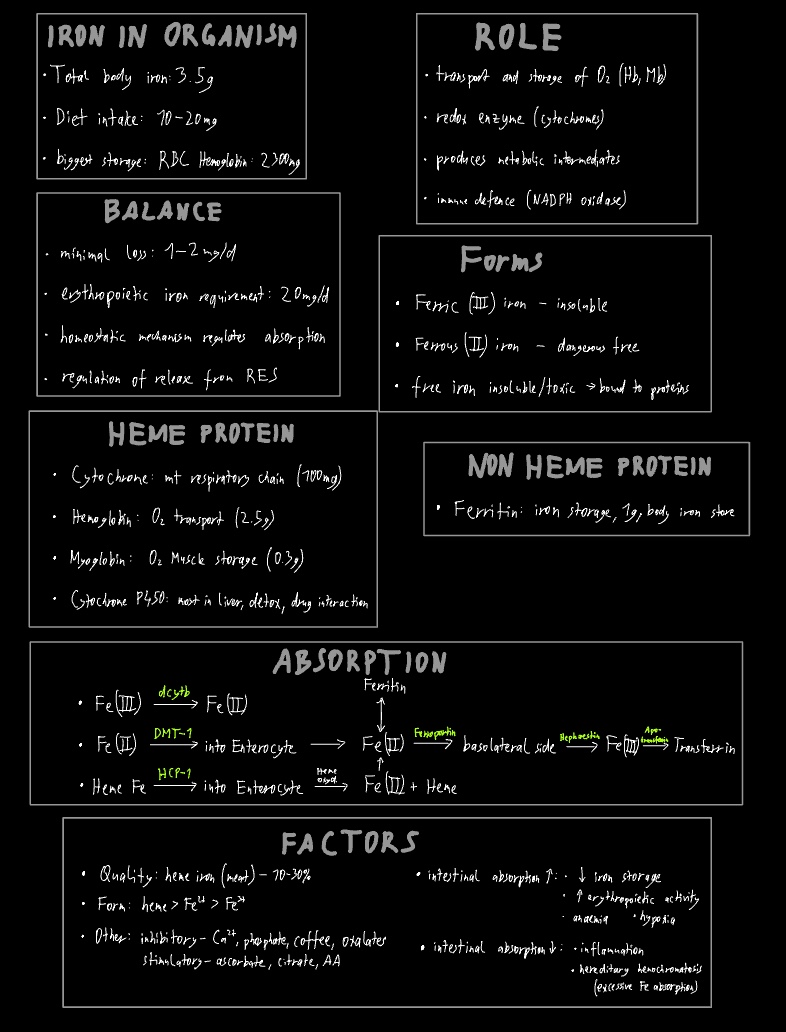 IRON IN ORGANISM
· Total body iron: 3.5g
· Diet intake: 10-20mg
· biggest storage: RBC Hemoglobin: 2300mg
ROLE
· transport and storage of O₂ (Hb, Mb)
· redox enzyme (cytochromes)
· produces metabolic intermediates
· immune defence (NADPH oxidase)
BALANCE
· minimal loss: 1-2mg/d
· erythropoietic iron requirement: 20mg/d
· homeostatic mechanism regulates absorption
· regulation of release from RES
Forms
· Ferric (III) iron - insoluble
· Ferrous (II) iron - dangerous free
· free iron insoluble/toxic → bound to proteins
HEME PROTEIN
· Cytochrome: mt respiratory chain (100mg)
· Hemoglobin: O₂ transport (2.5g)
· Myoglobin: O₂ Muscle storage (0.3g)
· Cytochrome P450: most in liver, detox, drug interaction
NON HEME PROTEIN
· Ferritin: iron storage, 1g, body iron store
ABSORPTION
Ferritin
· Fe(III) dcytb → Fe(II)
· Fe(II) DMT-1 → into Enterocyte → Fe(II) Ferroportin → basolateral side Hephaestin → Fe(III) Apo-transferrin → Transferrin
· Heme Fe HCP-1 → into Enterocyte Heme oxyd. → Fe(II) + Heme
FACTORS
· Quality: heme iron (meat) - 10-30%
· Form: heme > Fe²⁺ > Fe³⁺
· Other: inhibitory - Ca²⁺, phosphate, coffee, oxalates
stimulatory - ascorbate, citrate, AA
· intestinal absorption ↑: · ↓ iron storage
· ↑ erythropoietic activity
· anaemia · hypoxia
· intestinal absorption ↓: · inflammation
· hereditary hemochromatosis
(excessive Fe absorption)